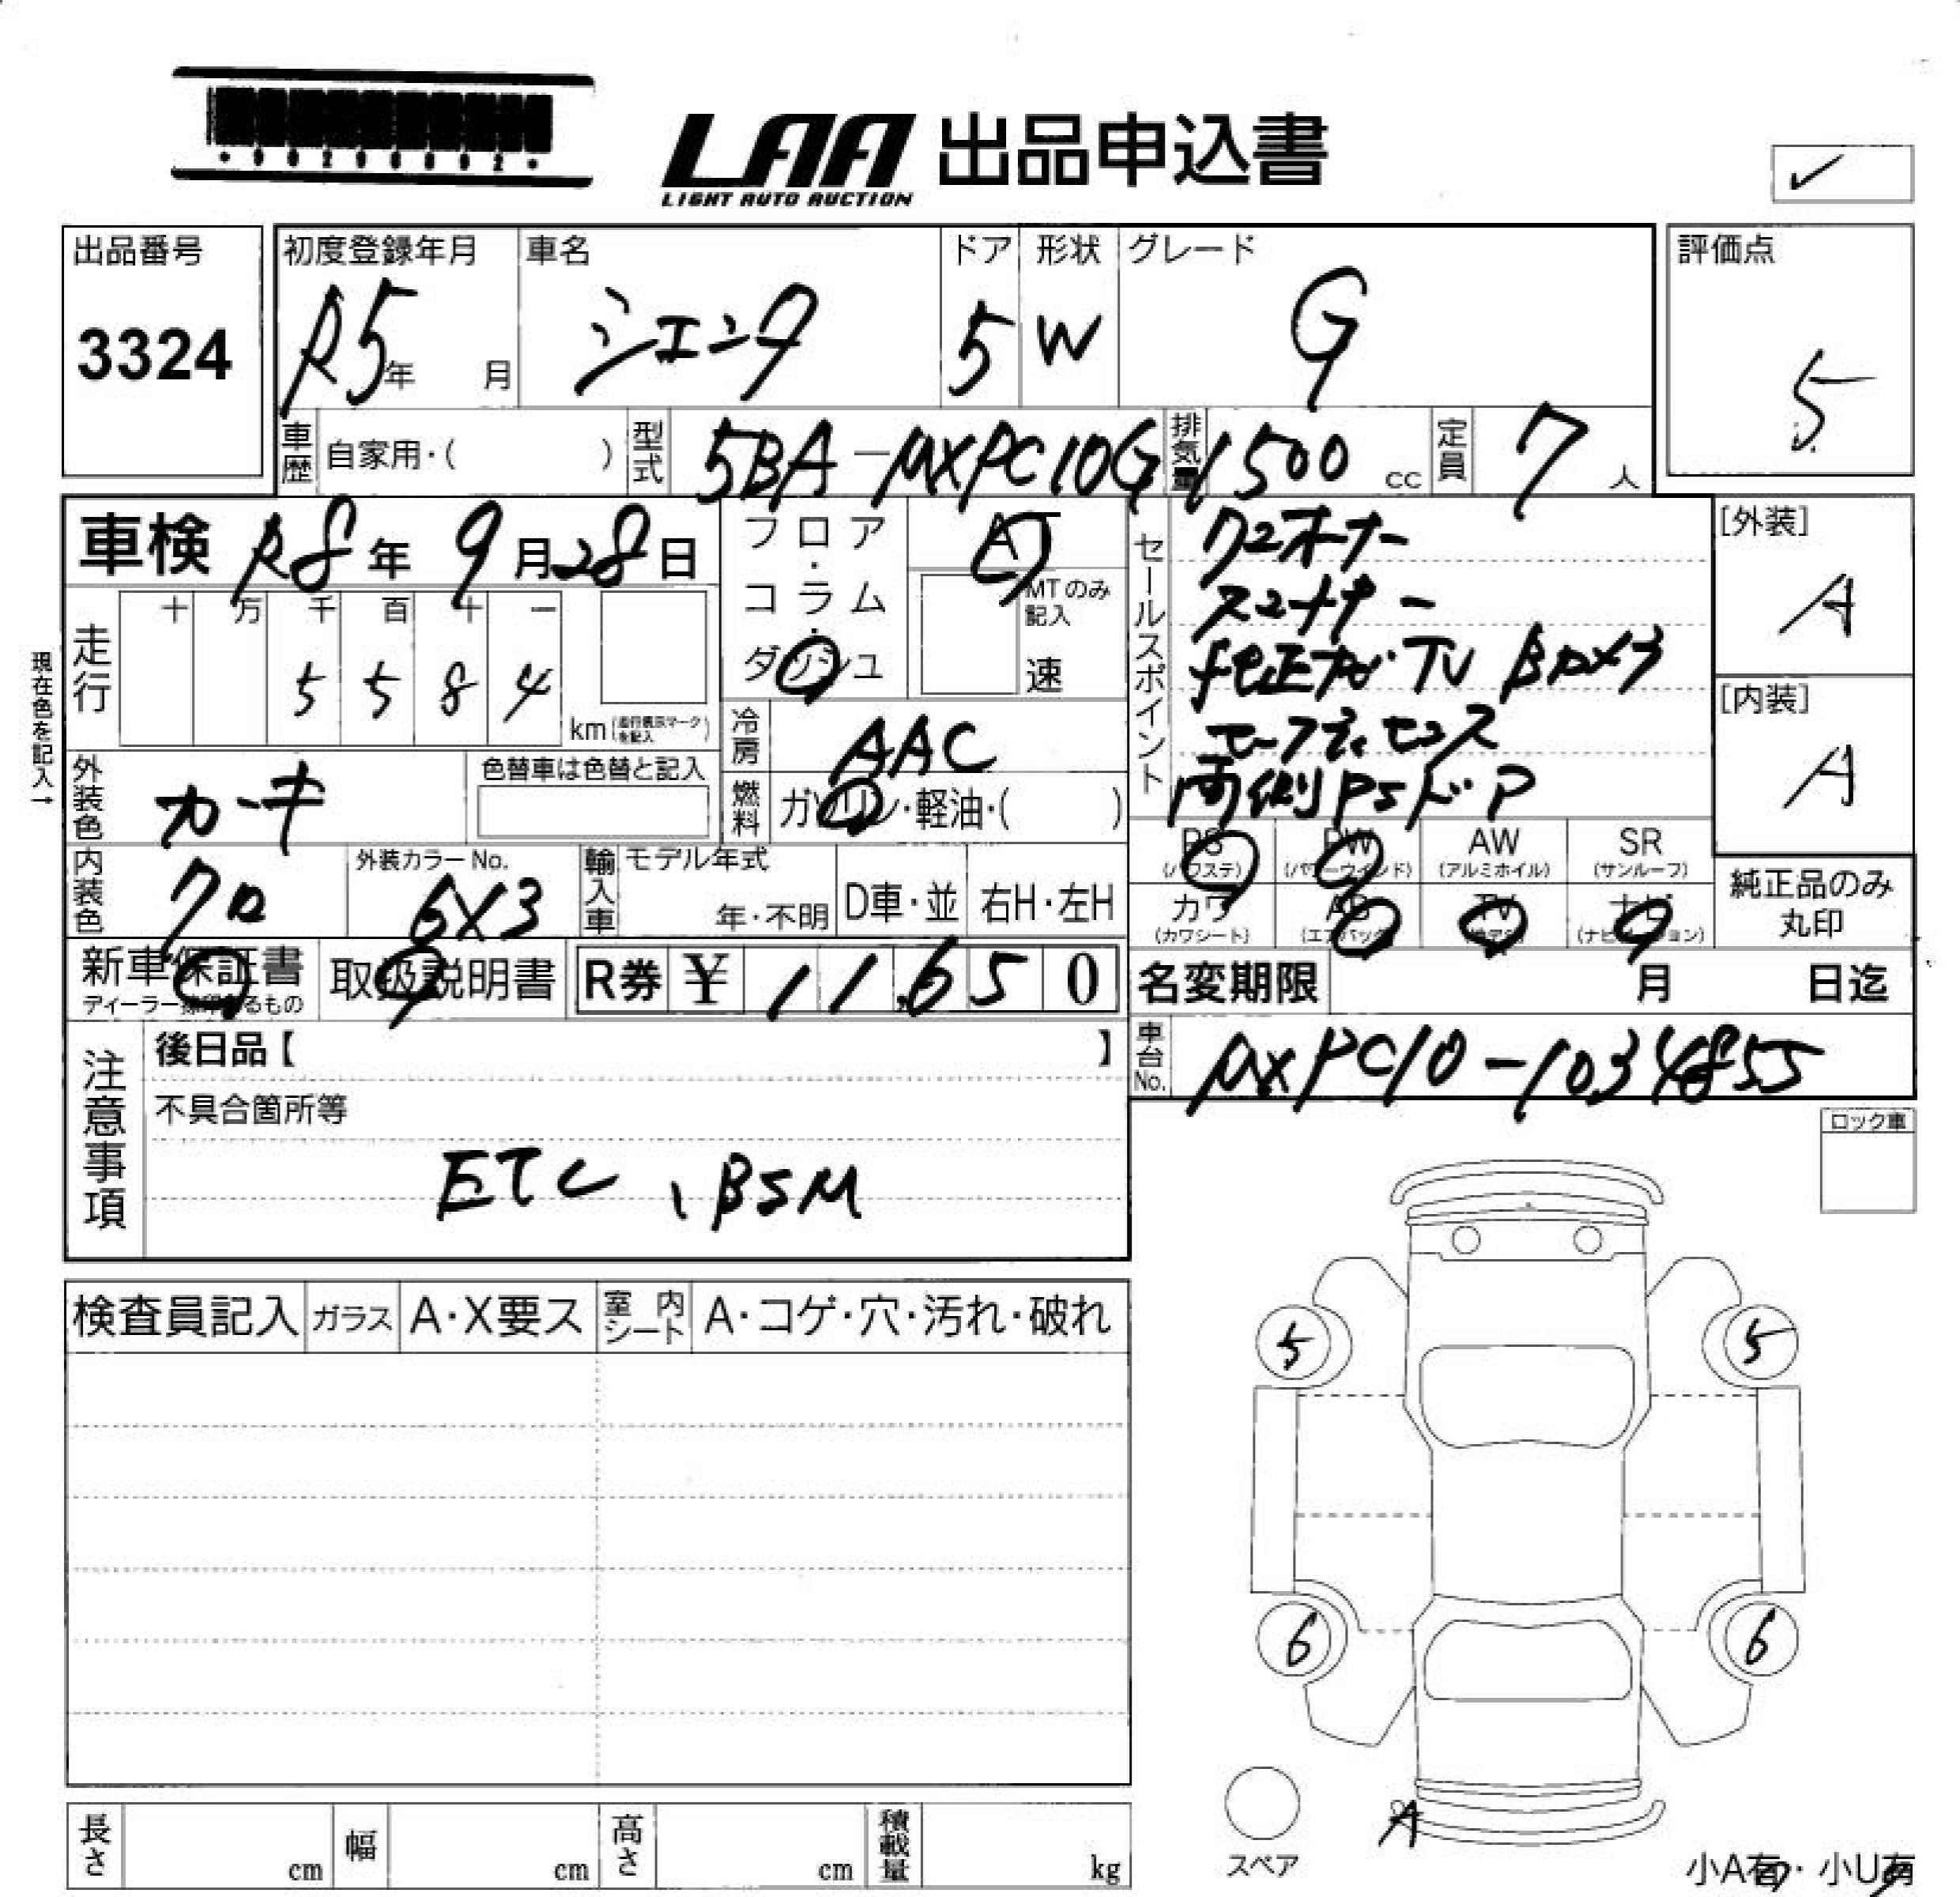 LAA 出品申込書
LIGHT AUTO AUCTION
✓
出品番号
3324
初度登録年月
R5年 月
車名
シエンタ
ドア
5
形状
W
グレード
G
評価点
5
車歴 自家用・( )
型式 5BA-MXPC10G
排気量 1500 cc
定員 7 人
車検 R8年 9月28日
フロア・コラム・ダッシュ
AT
MTのみ記入
速
セールスポイント
ワンオーナー
スマートキー
純正ナビ・TV
セーフティセンス
両側PSド・P
[外装]
A
[内装]
A
現在色を記入→
走行
十 万 千 百 十 一
5 5 8 4
km (走行表示マークを記入)
冷房 AAC
外装色 カーキ
色替車は色替と記入
燃料 ガソリン・軽油・( )
内装色 クロ
外装カラーNo.
6X3
輸入車 モデル年式
年・不明
D車・並
右H・左H
PS (パワステ)
PW (パワーウインド)
AW (アルミホイル)
SR (サンルーフ)
カワ (カワシート)
AB (エアバッグ)
TV
ナビ (ナビゲーション)
純正品のみ丸印
新車保証書
ディーラー捺印あるもの
取扱説明書
R券 ¥ 11,650
名変期限 月 日迄
車台No. MXPC10-1034855
注意事項
後日品【 】
不具合箇所等
ETC、BSM
ロック車
検査員記入 ガラス A・X要ス 室内シート A・コゲ・穴・汚れ・破れ
5 5
6 6
A
スペア
長さ cm 幅 cm 高さ cm 積載量 kg
小A有・小U有